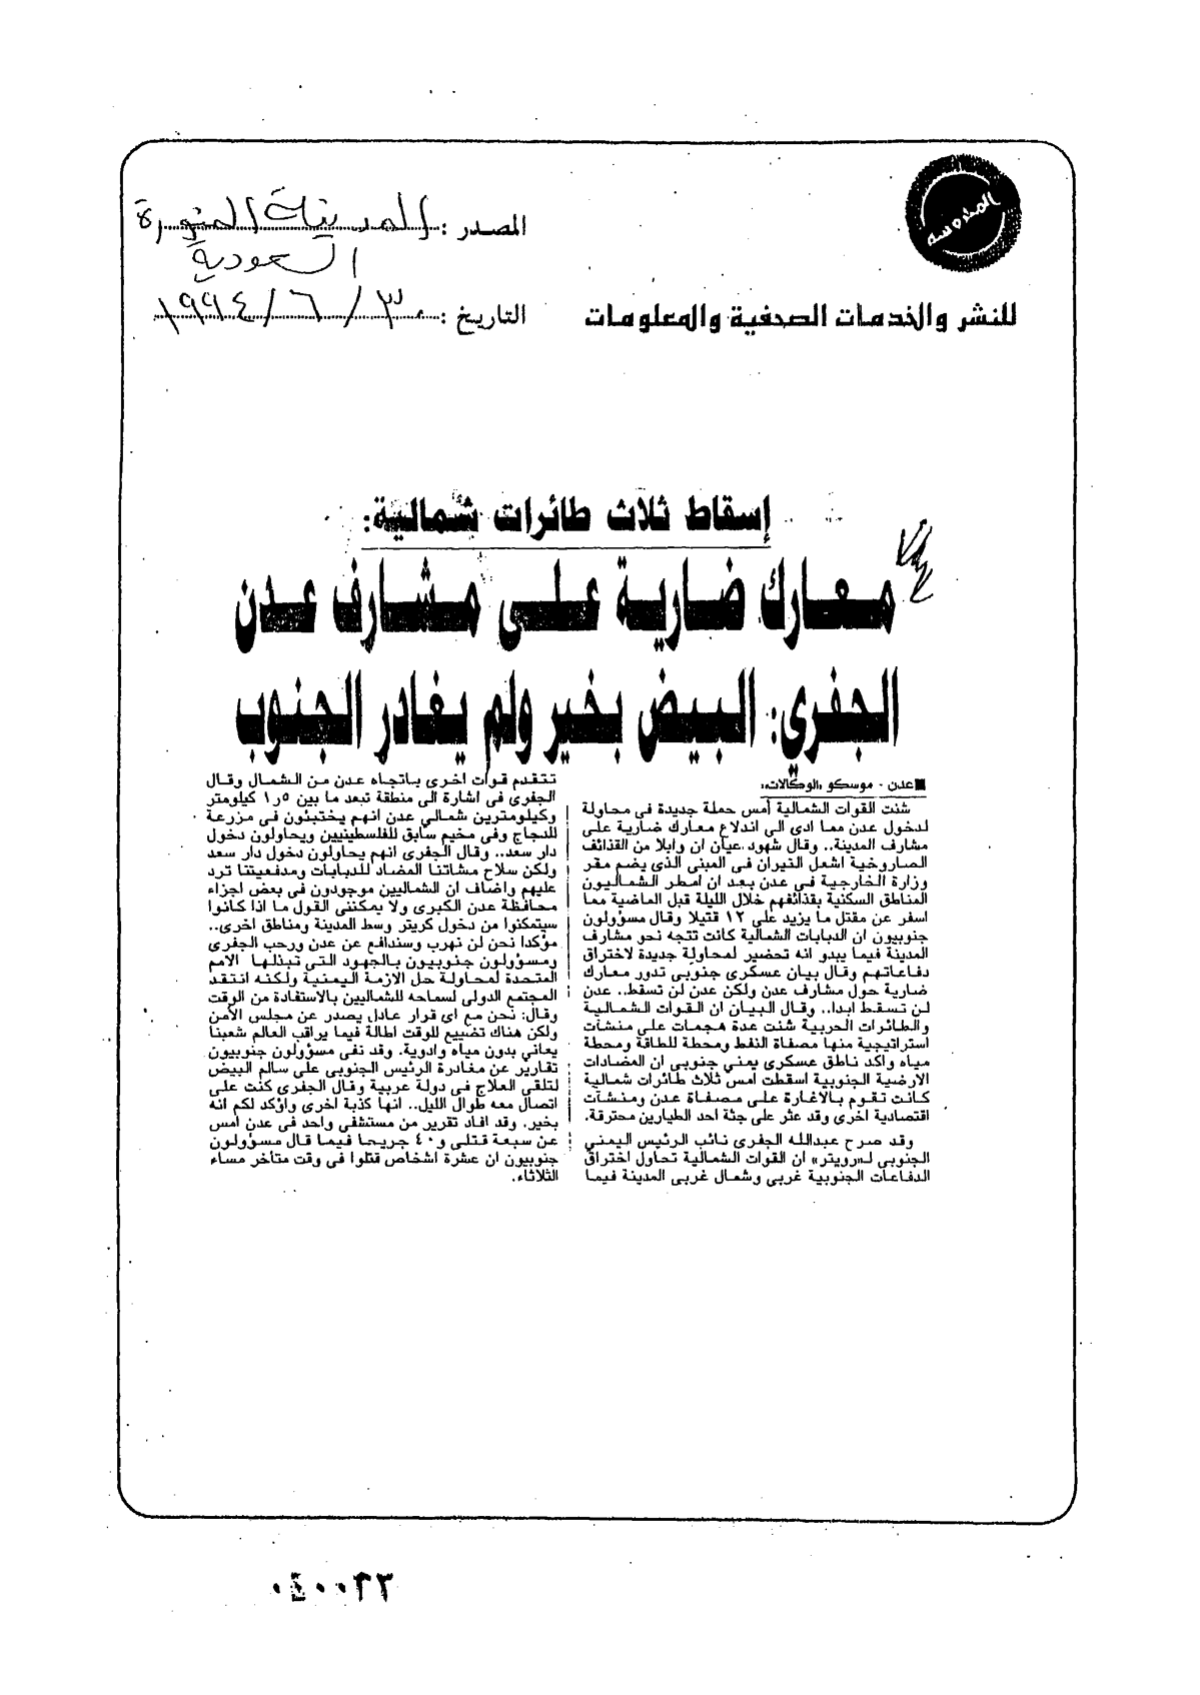 المدوسه
المصدر : المدينة المنورة
السعودية
للنشر والخدمات الصحفية والمعلومات
التاريخ : ٣٠ / ٦ / ١٩٩٤
إسقاط ثلاث طائرات شمالية:
معارك ضارية على مشارف عدن
الجفري: البيض بخير ولم يغادر الجنوب
■ عدن - موسكو «الوكالات»:
شنت القوات الشمالية أمس حملة جديدة فى محاولة
لدخول عدن مما ادى الى اندلاع معارك ضارية على
مشارف المدينة.. وقال شهود عيان ان وابلا من القذائف
الصاروخية اشعل النيران فى المبنى الذي يضم مقر
وزارة الخارجية فى عدن بعد ان امطر الشماليون
المناطق السكنية بقذائفهم خلال الليلة قبل الماضية مما
اسفر عن مقتل ما يزيد على ١٢ قتيلا وقال مسؤولون
جنوبيون ان الدبابات الشمالية كانت تتجه نحو مشارف
المدينة فيما يبدو انه تحضير لمحاولة جديدة لاختراق
دفاعاتهم وقال بيان عسكرى جنوبى تدور معارك
ضارية حول مشارف عدن ولكن عدن لن تسقط.. عدن
لن تسقط ابدا.. وقال البيان ان القوات الشمالية
والطائرات الحربية شنت عدة هجمات على منشآت
استراتيجية منها مصفاة النفط ومحطة للطاقة ومحطة
مياه واكد ناطق عسكرى يمني جنوبى ان المضادات
الارضية الجنوبية اسقطت امس ثلاث طائرات شمالية
كانت تقوم بالاغارة على مصفاة عدن ومنشآت
اقتصادية اخرى وقد عثر على جثة احد الطيارين محترقة.
وقد صرح عبدالله الجفرى نائب الرئيس اليمني
الجنوبى لـ«رويتر» ان القوات الشمالية تحاول اختراق
الدفاعات الجنوبية غربى وشمال غربى المدينة فيما
تتقدم قوات اخرى باتجاه عدن من الشمال وقال
الجفرى فى اشارة الى منطقة تبعد ما بين ١٫٥ كيلومتر
وكيلومترين شمالي عدن انهم يختبئون فى مزرعة
للدجاج وفى مخيم سابق للفلسطينيين ويحاولون دخول
دار سعد.. وقال الجفرى انهم يحاولون دخول دار سعد
ولكن سلاح مشاتنا المضاد للدبابات ومدفعيتنا ترد
عليهم واضاف ان الشماليين موجودون فى بعض اجزاء
محافظة عدن الكبرى ولا يمكننى القول ما اذا كانوا
سيتمكنوا من دخول كريتر وسط المدينة ومناطق اخرى..
مؤكدا نحن لن نهرب وسندافع عن عدن ورحب الجفرى
ومسؤولون جنوبيون بالجهود التى تبذلها الامم
المتحدة لمحاولة حل الازمة اليمنية ولكنه انتقد
المجتمع الدولى لسماحه للشماليين بالاستفادة من الوقت
وقال: نحن مع اى قرار عادل يصدر عن مجلس الأمن
ولكن هناك تضييع للوقت اطالة فيما يراقب العالم شعبنا
يعاني بدون مياه وادوية. وقد نفى مسؤولون جنوبيون
تقارير عن مغادرة الرئيس الجنوبى على سالم البيض
لتلقى العلاج فى دولة عربية وقال الجفرى كنت على
اتصال معه طوال الليل.. انها كذبة اخرى واؤكد لكم انه
بخير. وقد افاد تقرير من مستشفى واحد فى عدن أمس
عن سبعة قتلى و٤٠ جريحا فيما قال مسؤولون
جنوبيون ان عشرة اشخاص قتلوا فى وقت متأخر مساء
الثلاثاء.
٠٤٠٠٢٣